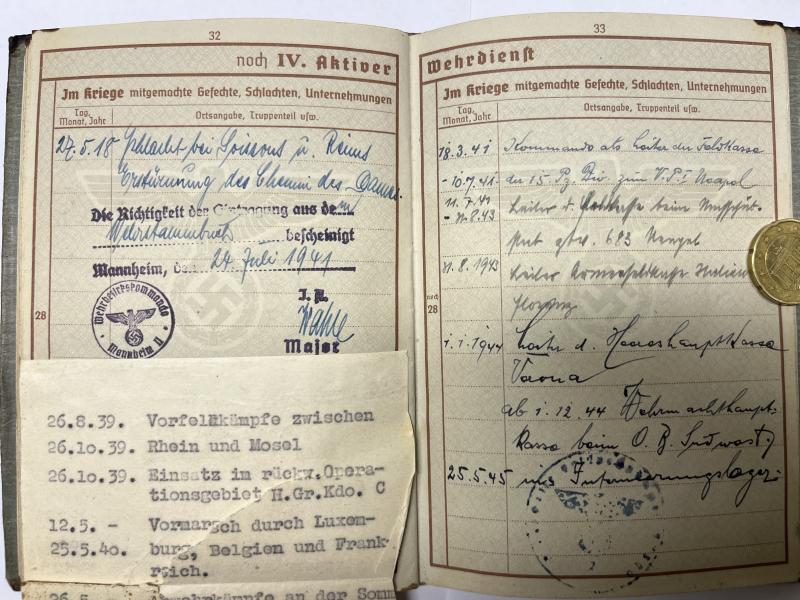 32
noch IV. Aktiver
Im Kriege mitgemachte Gefechte, Schlachten, Unternehmungen
Tag, Monat, Jahr
Ortsangabe, Truppenteil usw.
27.5.18 Schlacht bei Soissons u. Reims
Erstürmung des Chemin des Dames
Die Richtigkeit der Eintragung aus dem
Wehrstammbuch bescheinigt
Mannheim, den 24 Juli 1941
Wehrbezirkskommando
Mannheim II
28
Major
26.8.39. Vorfeldkämpfe zwischen
26.10.39. Rhein und Mosel
26.10.39. Einsatz im rückw.Opera-
tionsgebiet H.Gr.Kdo. C
12.5. - Vormarsch durch Luxem-
25.5.40. burg, Belgien und Frank
reich.
26.5. Abwehrkämpfe an der Somm
33
Wehrdienst
Im Kriege mitgemachte Gefechte, Schlachten, Unternehmungen
Tag, Monat, Jahr
Ortsangabe, Truppenteil usw.
18.3.41 Kommando als Leiter der Feldkasse
- 10.7.41 der 15. Pz. Div. zum V.P.I Neapel
11.7.41 Leiter d. beim
- 11.8.43 683 Neapel
11.8.1943 Leiter Armeefeldkasse Italien
noch
28
1.1.1944 Leiter d. Heereshauptkasse
Verona
ab 1.12.44 Wehrmachthaupt-
kasse beim O.B. Südwest
25.5.45 ins Internierungslager